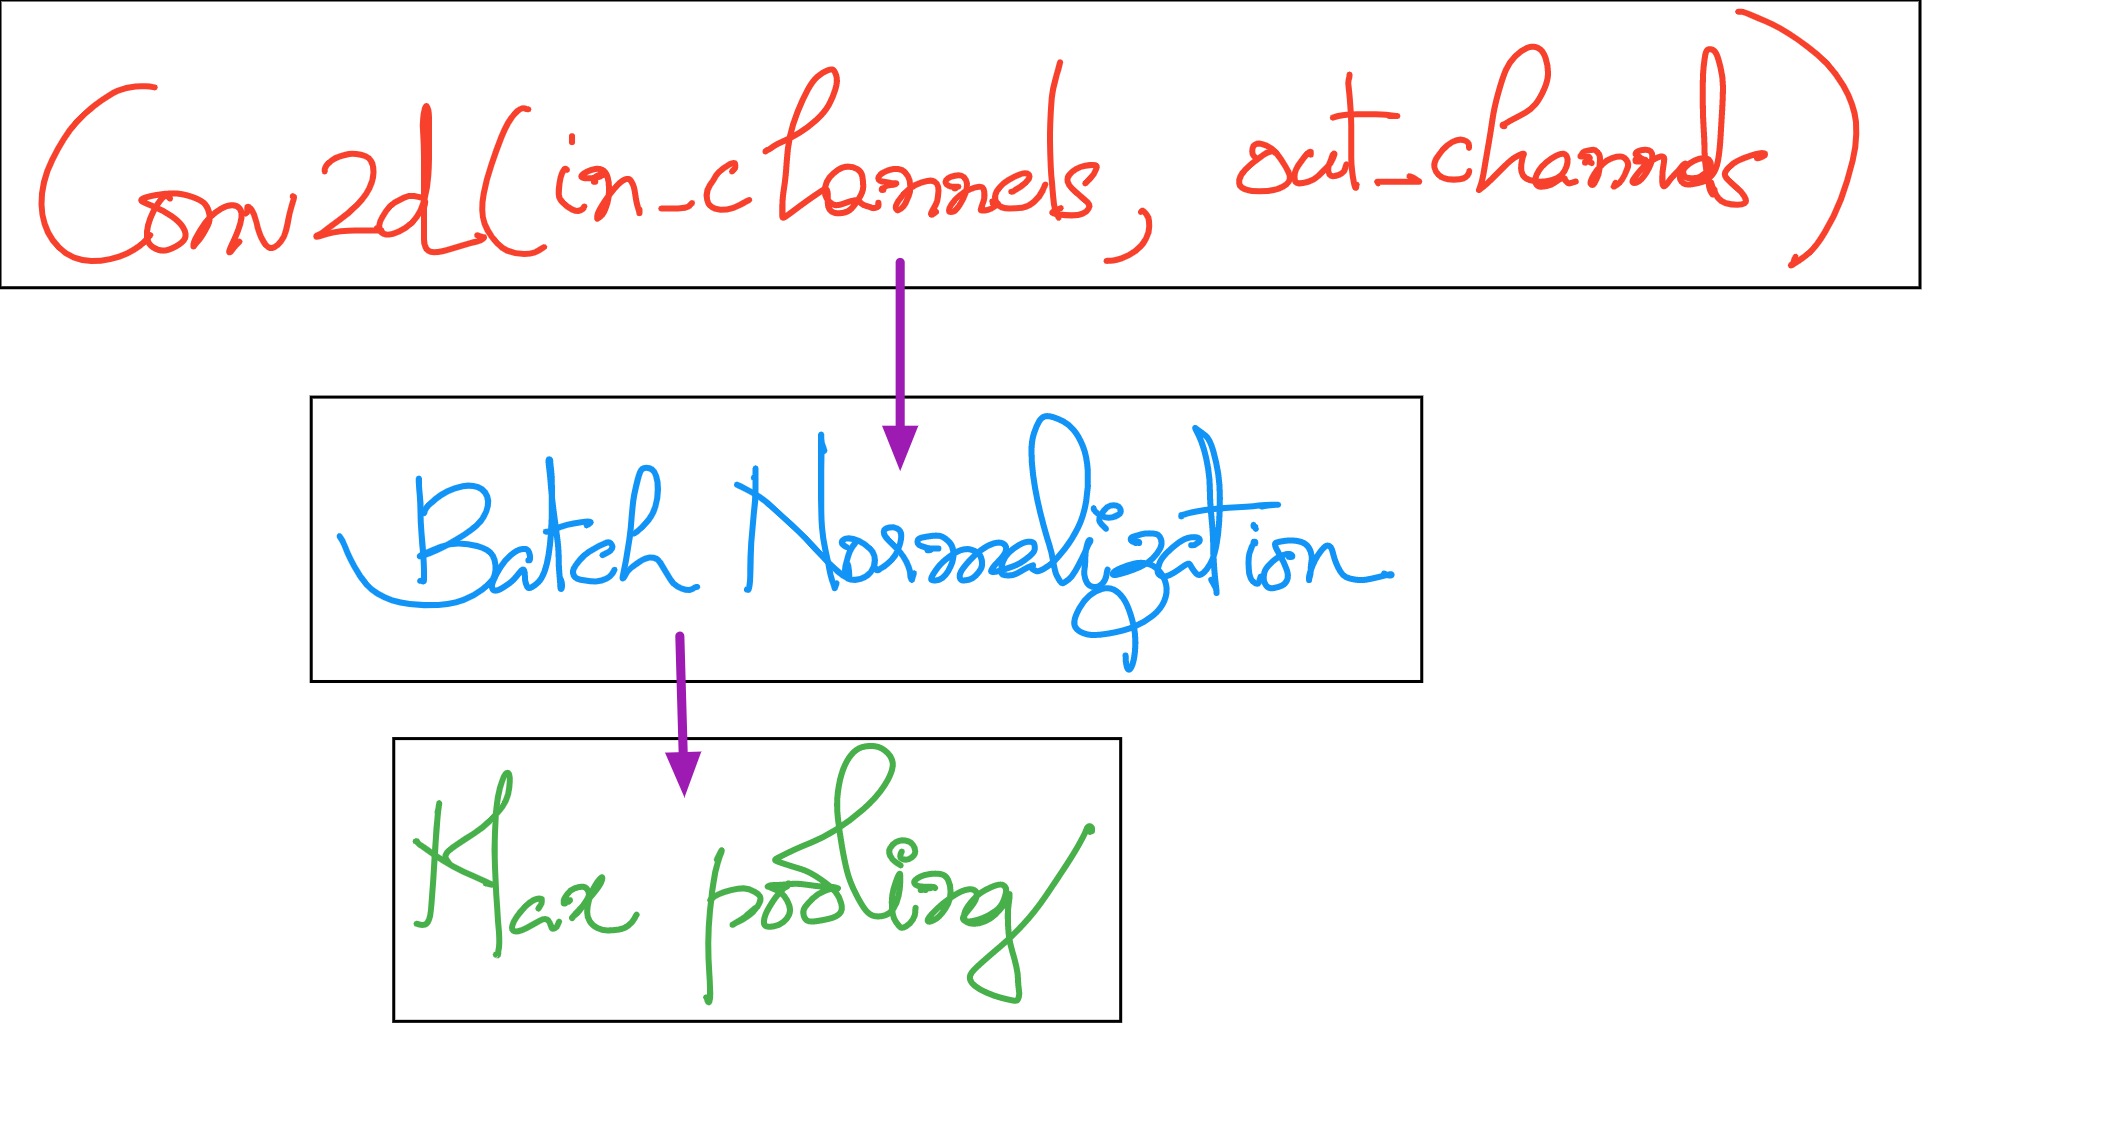 Conv2d(in_channels, out_channels)
Batch Normalization
Max pooling